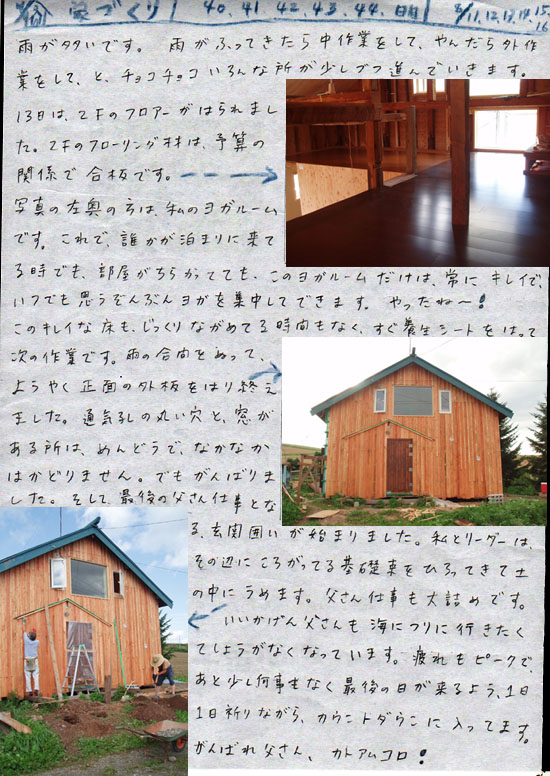 家づくり 40、41、42、43、44、日目 8/11、12、13、14、15、16
雨が多いです。 雨がふってきたら中作業をして、やんだら外作
業をして、と、チョコチョコいろんな所が少しづつ進んでいきます。
13日は、2Fのフロアーがはられまし
た。2Fのフローリング材は、予算の
関係で合板です。
写真の左奥の方は、私のヨガルーム
です。これで、誰かが泊まりに来て
る時でも、部屋がちらかってても、このヨガルームだけは、常にキレイで、
いつでも思うぞんぶんヨガを集中してできます。 やったね〜!
このキレイな床も、じっくりながめてる時間もなく、すぐ養生シートをはって
次の作業です。雨の合間をぬって、
ようやく正面の外板をはり終え
ました。通気孔の丸い穴と、窓が
ある所は、めんどうで、なかなか
はかどりません。でもがんばりま
した。そして、最後の父さん仕事とな
る、玄関囲いが始まりました。私とリーダーは、
その辺にころがってる基礎束をひろってきて土
の中にうめます。父さん仕事も大詰めです。
いいかげん父さんも海につりに行きたく
てしょうがなくなっています。疲れもピークで、
あと少し何事もなく最後の日が来るよう、1日
1日祈りながら、カウントダウンに入ってます。
がんばれ父さん、カトアムコロ!